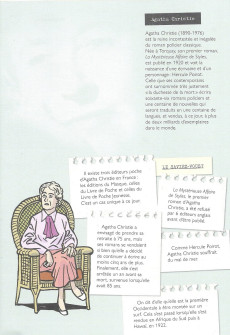 Agatha Christie
Agatha Christie (1890-1976)
est la reine incontestée et inégalée
du roman policier classique.
Née à Torquay, son premier roman,
La Mystérieuse Affaire de Styles,
est publié en 1920 et voit la
naissance d'une écrivaine et d'un
personnage : Hercule Poirot.
Celle que ses contemporains
ont surnommée très justement
« la duchesse de la mort » écrira
soixante-six romans policiers et
une centaine de nouvelles qui
seront traduits en une centaine de
langues, et vendus, à ce jour, à plus
de deux milliards d'exemplaires
dans le monde.
LE SAVIEZ-VOUS?
Il existe trois éditions poche
d'Agatha Christie en France :
les éditions du Masque, celles
du Livre de Poche et celles
du Livre de Poche Jeunesse.
C'est un cas unique à ce jour.
La Mystérieuse Affaire
de Styles, le premier
roman d'Agatha
Christie, a été refusé
par 6 éditeurs anglais
avant d'être publié.
Agatha Christie a
envisagé de prendre sa
retraite à 75 ans, mais
ses romans se vendaient
si bien qu'elle a décidé
de continuer à écrire au
moins cinq ans de plus.
Finalement, elle s'est
arrêtée un an avant sa
mort, survenue lorsqu'elle
avait 85 ans.
Comme Hercule Poirot,
Agatha Christie souffrait
du mal de mer.
On dit d'elle qu'elle est la première
Occidentale à être montée sur un
surf. Cela s'est passé lorsqu'elle s'est
rendue en Afrique du Sud puis à
Hawaï, en 1922.